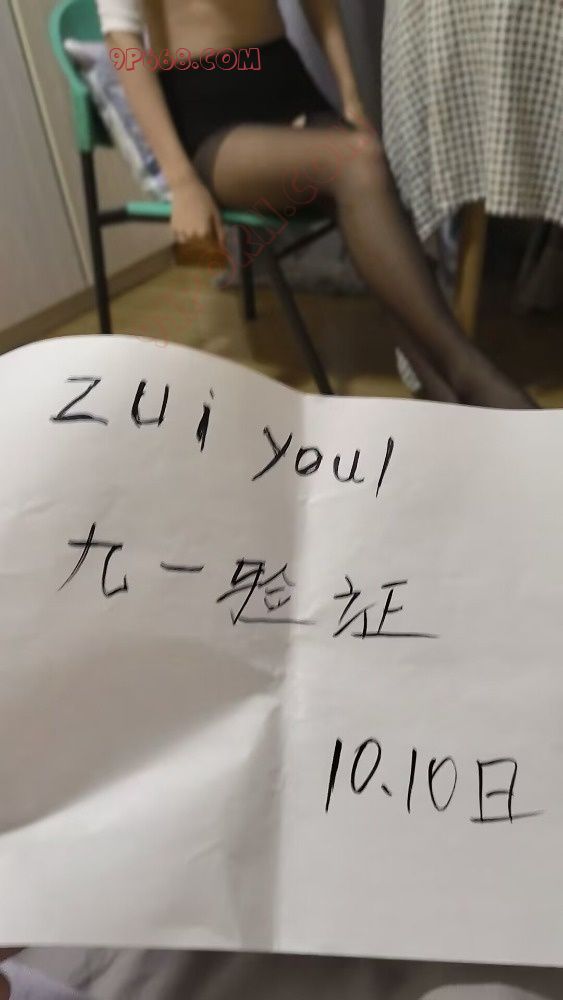 9P668.COM
zui youl
九一验证
10.10日